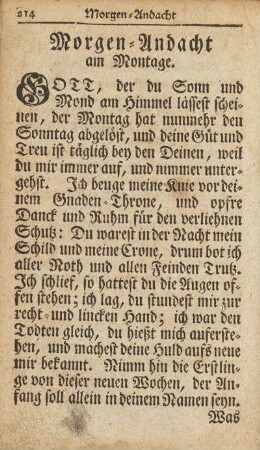 214 Morgen-Andacht
Morgen-Andacht
am Montage.
GOTT, der du Sonn und
Mond am Himmel lässest schei-
nen, der Montag hat nunmehr den
Sonntag abgelöst, und deine Güt und
Treu ist täglich bey den Deinen, weil
du mir immer auf, und nimmer unter-
gehst. Ich beuge meine Knie vor dei-
nem Gnaden-Throne, und opfre
Danck und Ruhm für den verliehnen
Schutz: Du warest in der Nacht mein
Schild und meine Crone, drum bot ich
aller Noth und allen Feinden Trutz.
Ich schlief, so hattest du die Augen of-
fen stehen; ich lag, du stundest mir zur
recht- und lincken Hand; ich war den
Todten gleich, du hießt mich auferste-
hen, und machest deine Huld aufs neue
mir bekannt. Nimm hin die Erstlin-
ge von dieser neuen Wochen, der An-
fang soll allein in deinem Namen seyn.
Was